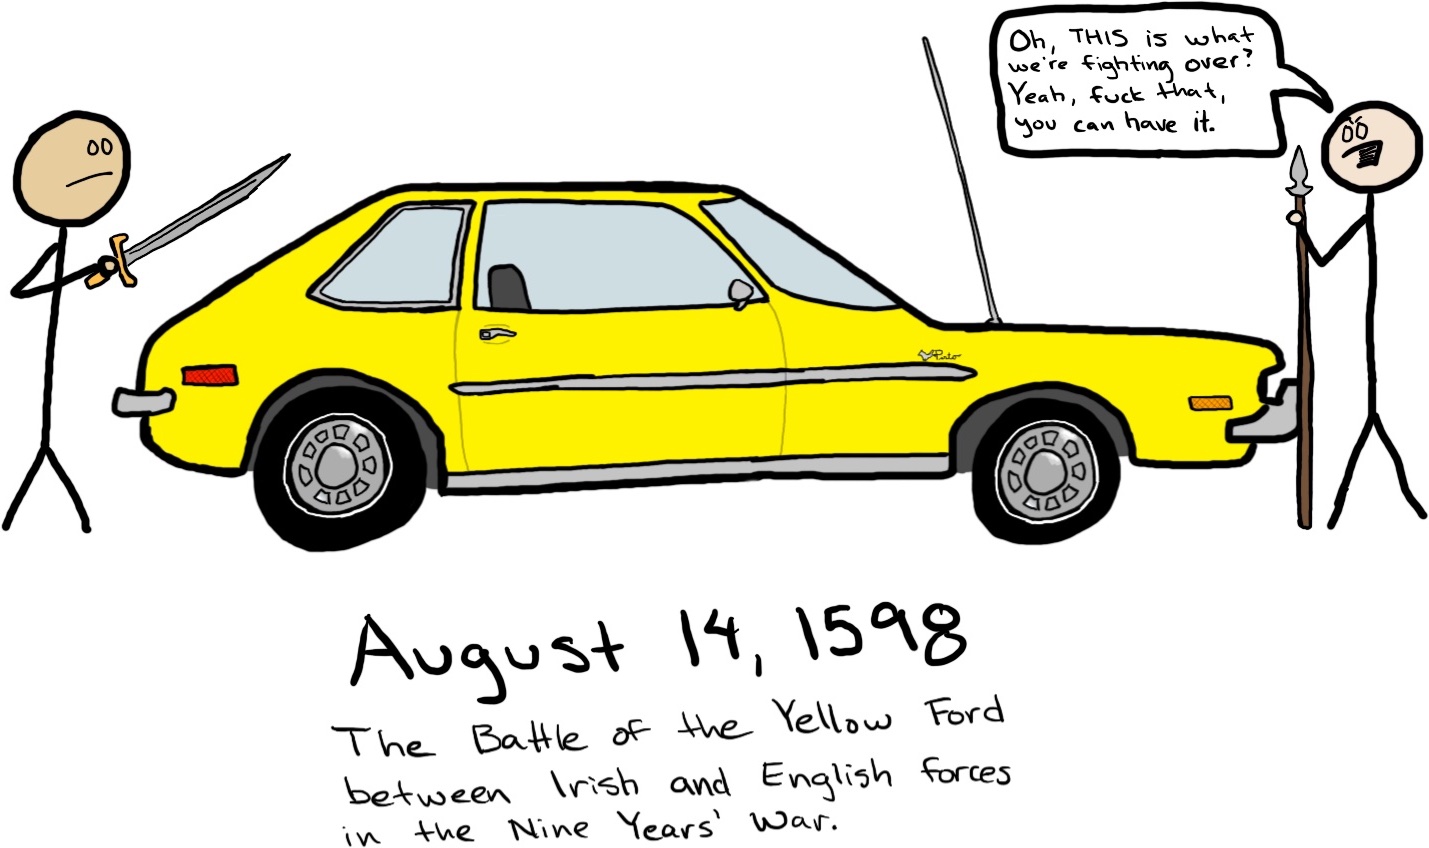 Oh, THIS is what
we're fighting over?
Yeah, fuck that,
you can have it.
Pinto
August 14, 1598
The Battle of the Yellow Ford
between Irish and English forces
in the Nine Years' War.